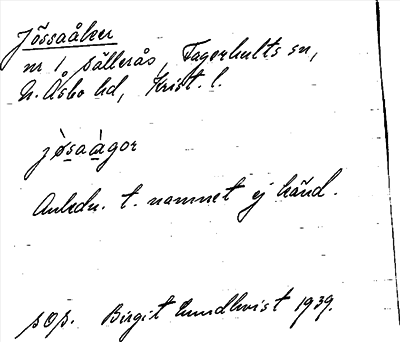 Jössaåker
nr 1 Sållerås, Fagerhults sn,
N. Åsbo hd, Krist. l.
jø̀saàgor
Anledn. t. namnet ej känd.
pop. Birgit Lundkvist 1939.